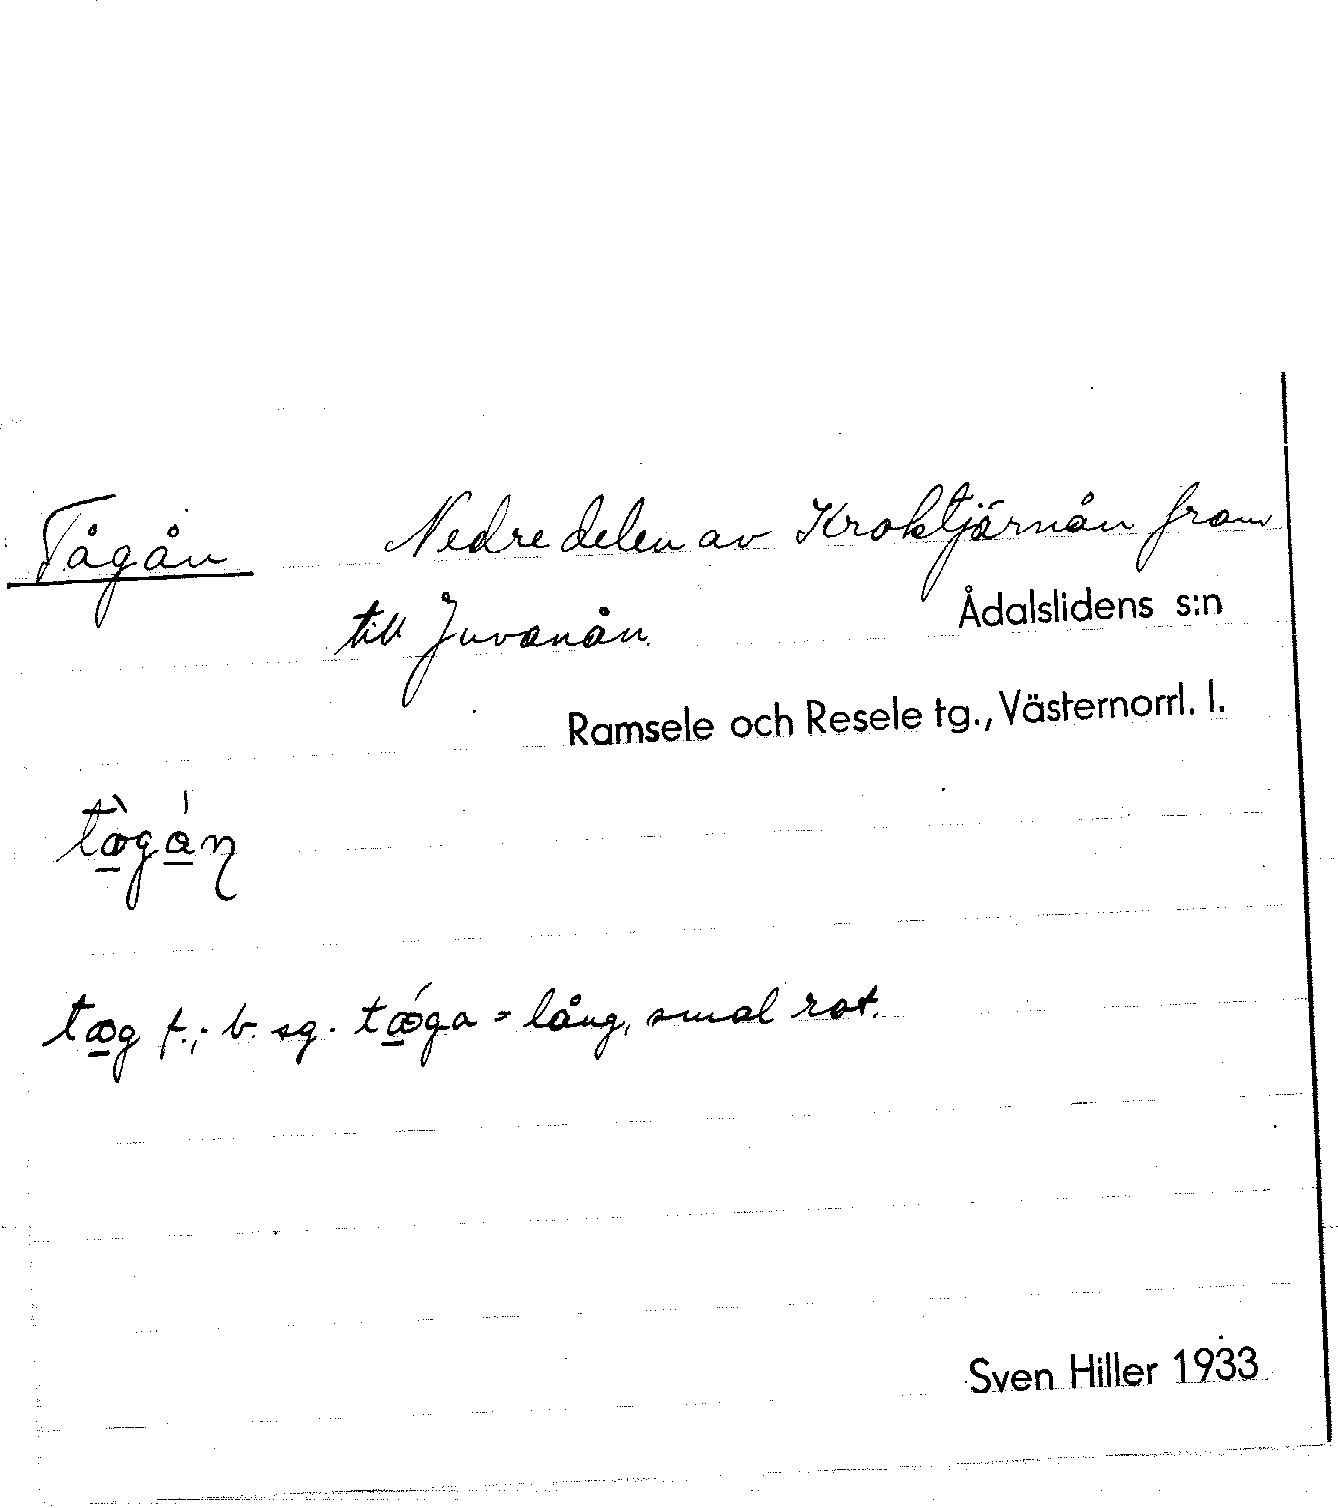 Tågån Nedre delen av Kroktjärnån fram
till Juvanån.
Ådalslidens s:n
Ramsele och Resele tg., Västernorrl. l.
tæ̲̀gá̲ɳ
tæ̲g f.; b. sg. tǽ̲ga = lång, smal rot.
Sven Hiller 1933